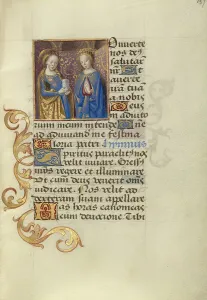 Onuerte
nos de
salutar
auerte
ram tua
a nobis
Deus
in adiuto
rium meum intende
ad iuuandum me festina
Gloria patri
piritus paracliti nos
velit iuuare. Gres
nos regere et illumi
ut cum deus venerit om
iudicare. Nos velit ad
dexteram suam apellare
as horas canonicas
cum deuocione. Tibi